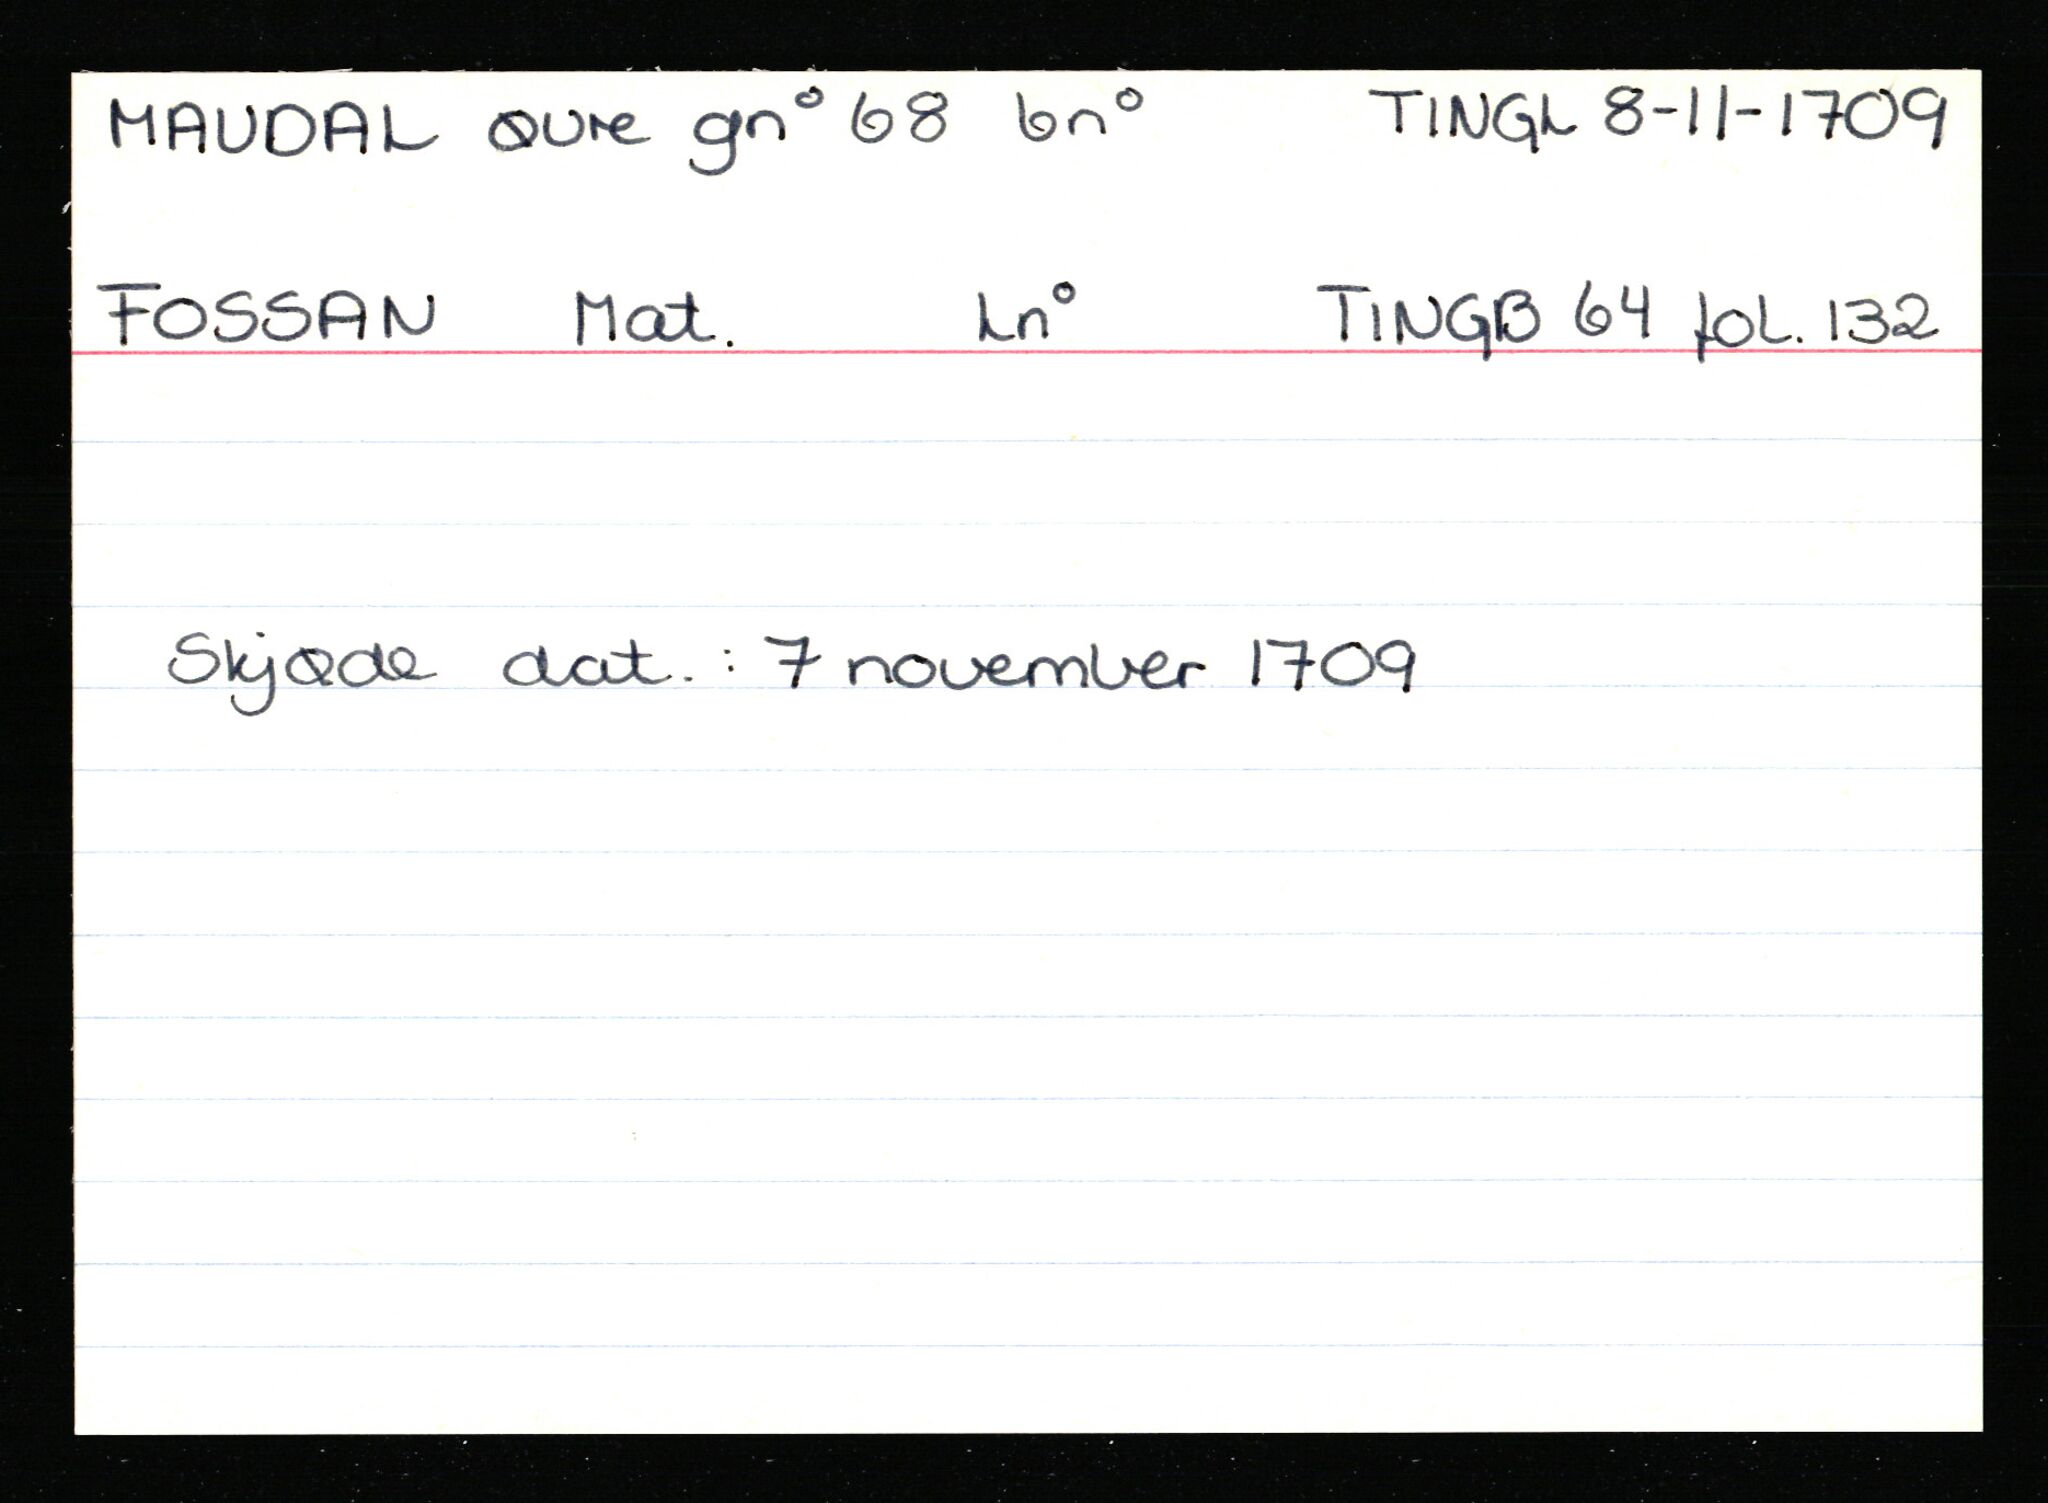 MAUDAL øvre gn° 68 bn° TINGL 8-11-1709
FOSSAN Mat. Ln° TINGB 64 fol. 132
Skjøde dat.: 7 november 1709